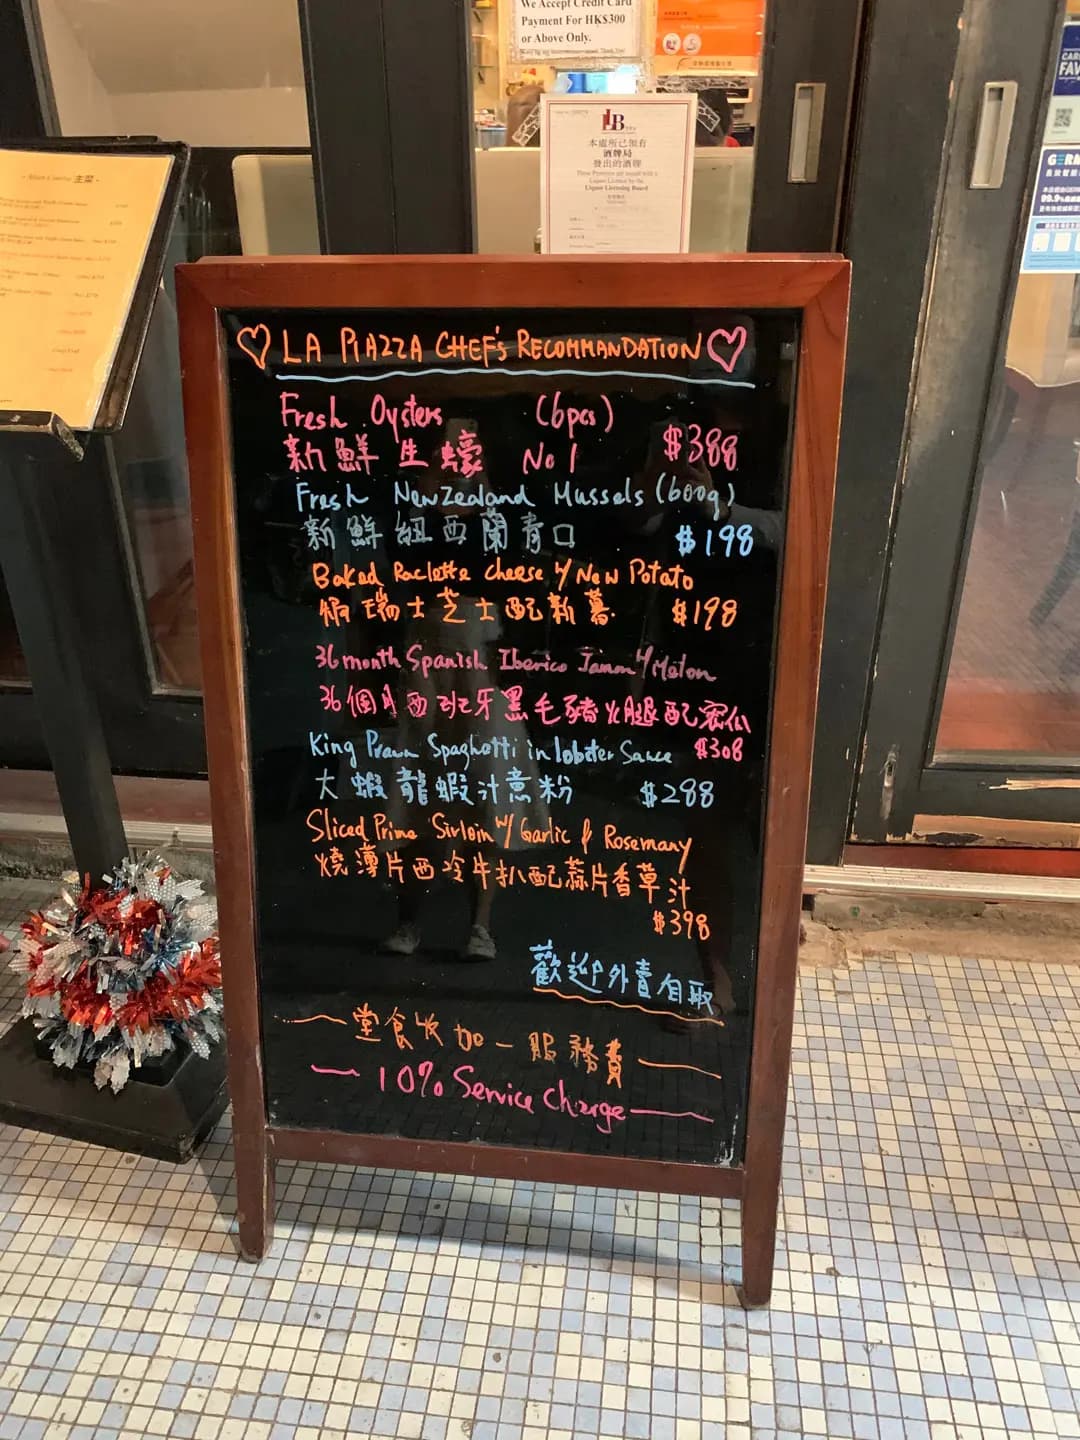 We Accept Credit Card
Payment For HK$300
or Above Only.
LB
本處所已領有
酒牌局
發出的酒牌
These Premises are issued with a
Liquor Licence by the
Liquor Licensing Board
- Main Course 主菜 -
GERM
99.9%
LA PIAZZA CHEF'S RECOMMANDATION
Fresh Oysters (6pcs)
新鮮生蠔 No 1 $388
Fresh NewZealand Mussels (600g)
新鮮紐西蘭青口 $198
Baked Raclette Cheese w/ New Potato
焗瑞士芝士配新薯 $198
36month Spanish Iberico Jamon w/ Melon
36個月西班牙黑毛豬火腿配蜜瓜
$308
King Prawn Spaghetti in lobster Sauce
大蝦龍蝦汁意粉 $288
Sliced Prime Sirloin w/ Garlic & Rosemary
燒薄片西冷牛扒配蒜片香草汁
$398
歡迎外賣自取
堂食收加一服務費
10% Service Charge